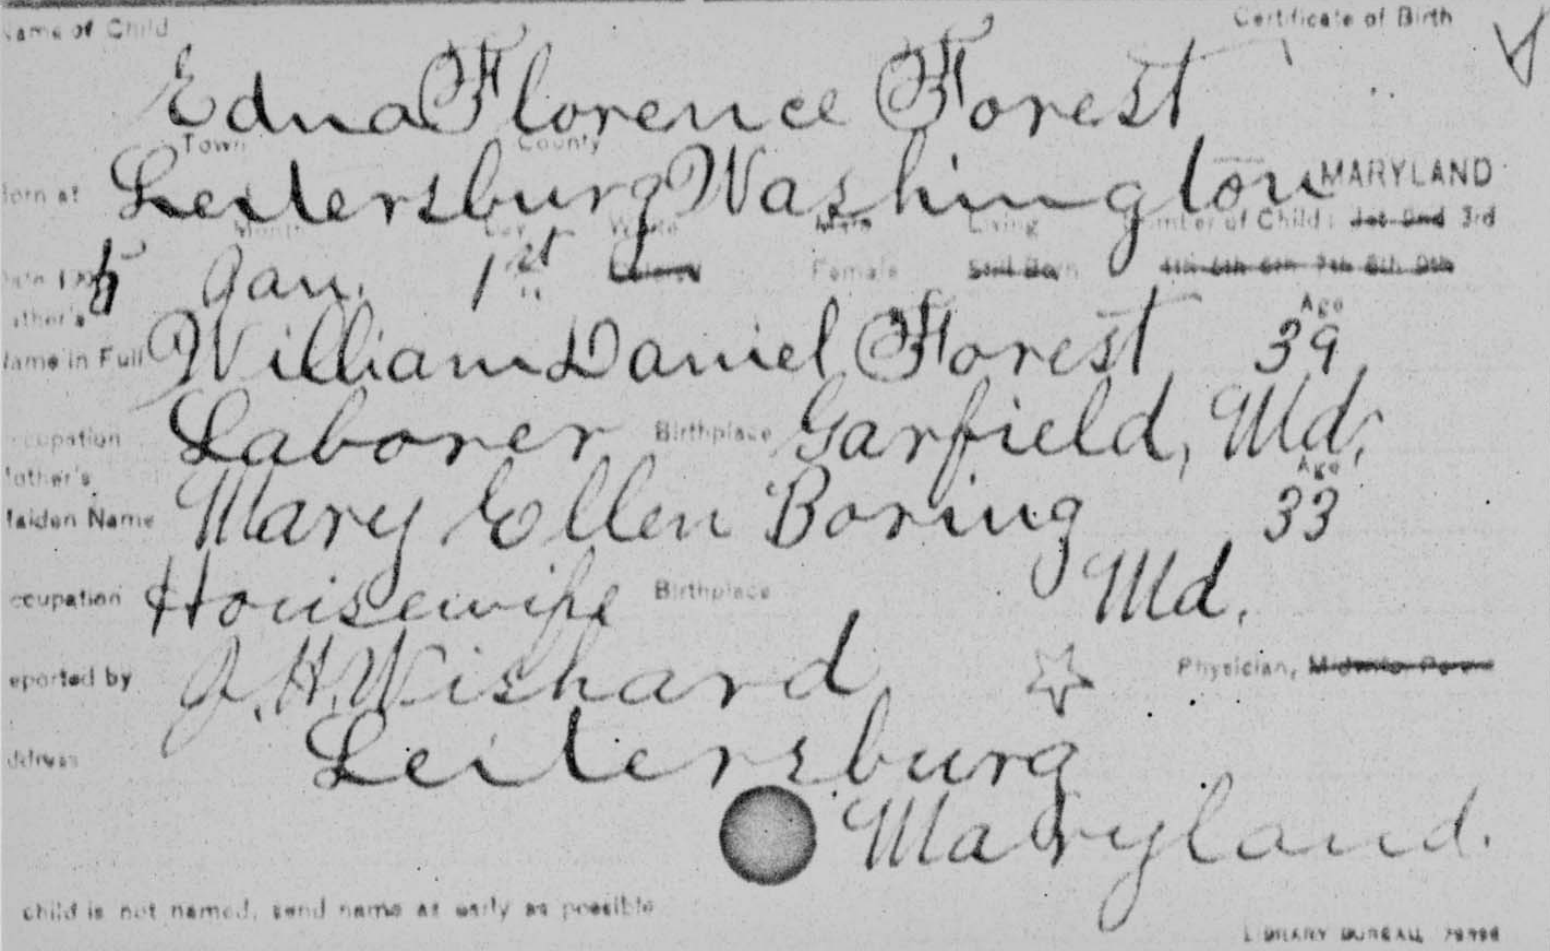 Name of Child Certificate of Birth
Edna Florence Forest
Town County
Born at Leitersburg Washington MARYLAND
Month Day White Male Living Number of Child: 1st 2nd 3rd
Date 1905 Jan. 1st Colored Female Still Born 4th 5th 6th 7th 8th 9th
Father's Age
Name in Full William Daniel Forest 39
Occupation Laborer Birthplace Garfield, Md.
Mother's Age
Maiden Name Mary Ellen Boring 33
Occupation Housewife Birthplace Md.
Reported by J. H. Wishard Physician, Midwife
Address Leitersburg
Maryland.
child is not named, send name as early as possible
LIBRARY BUREAU